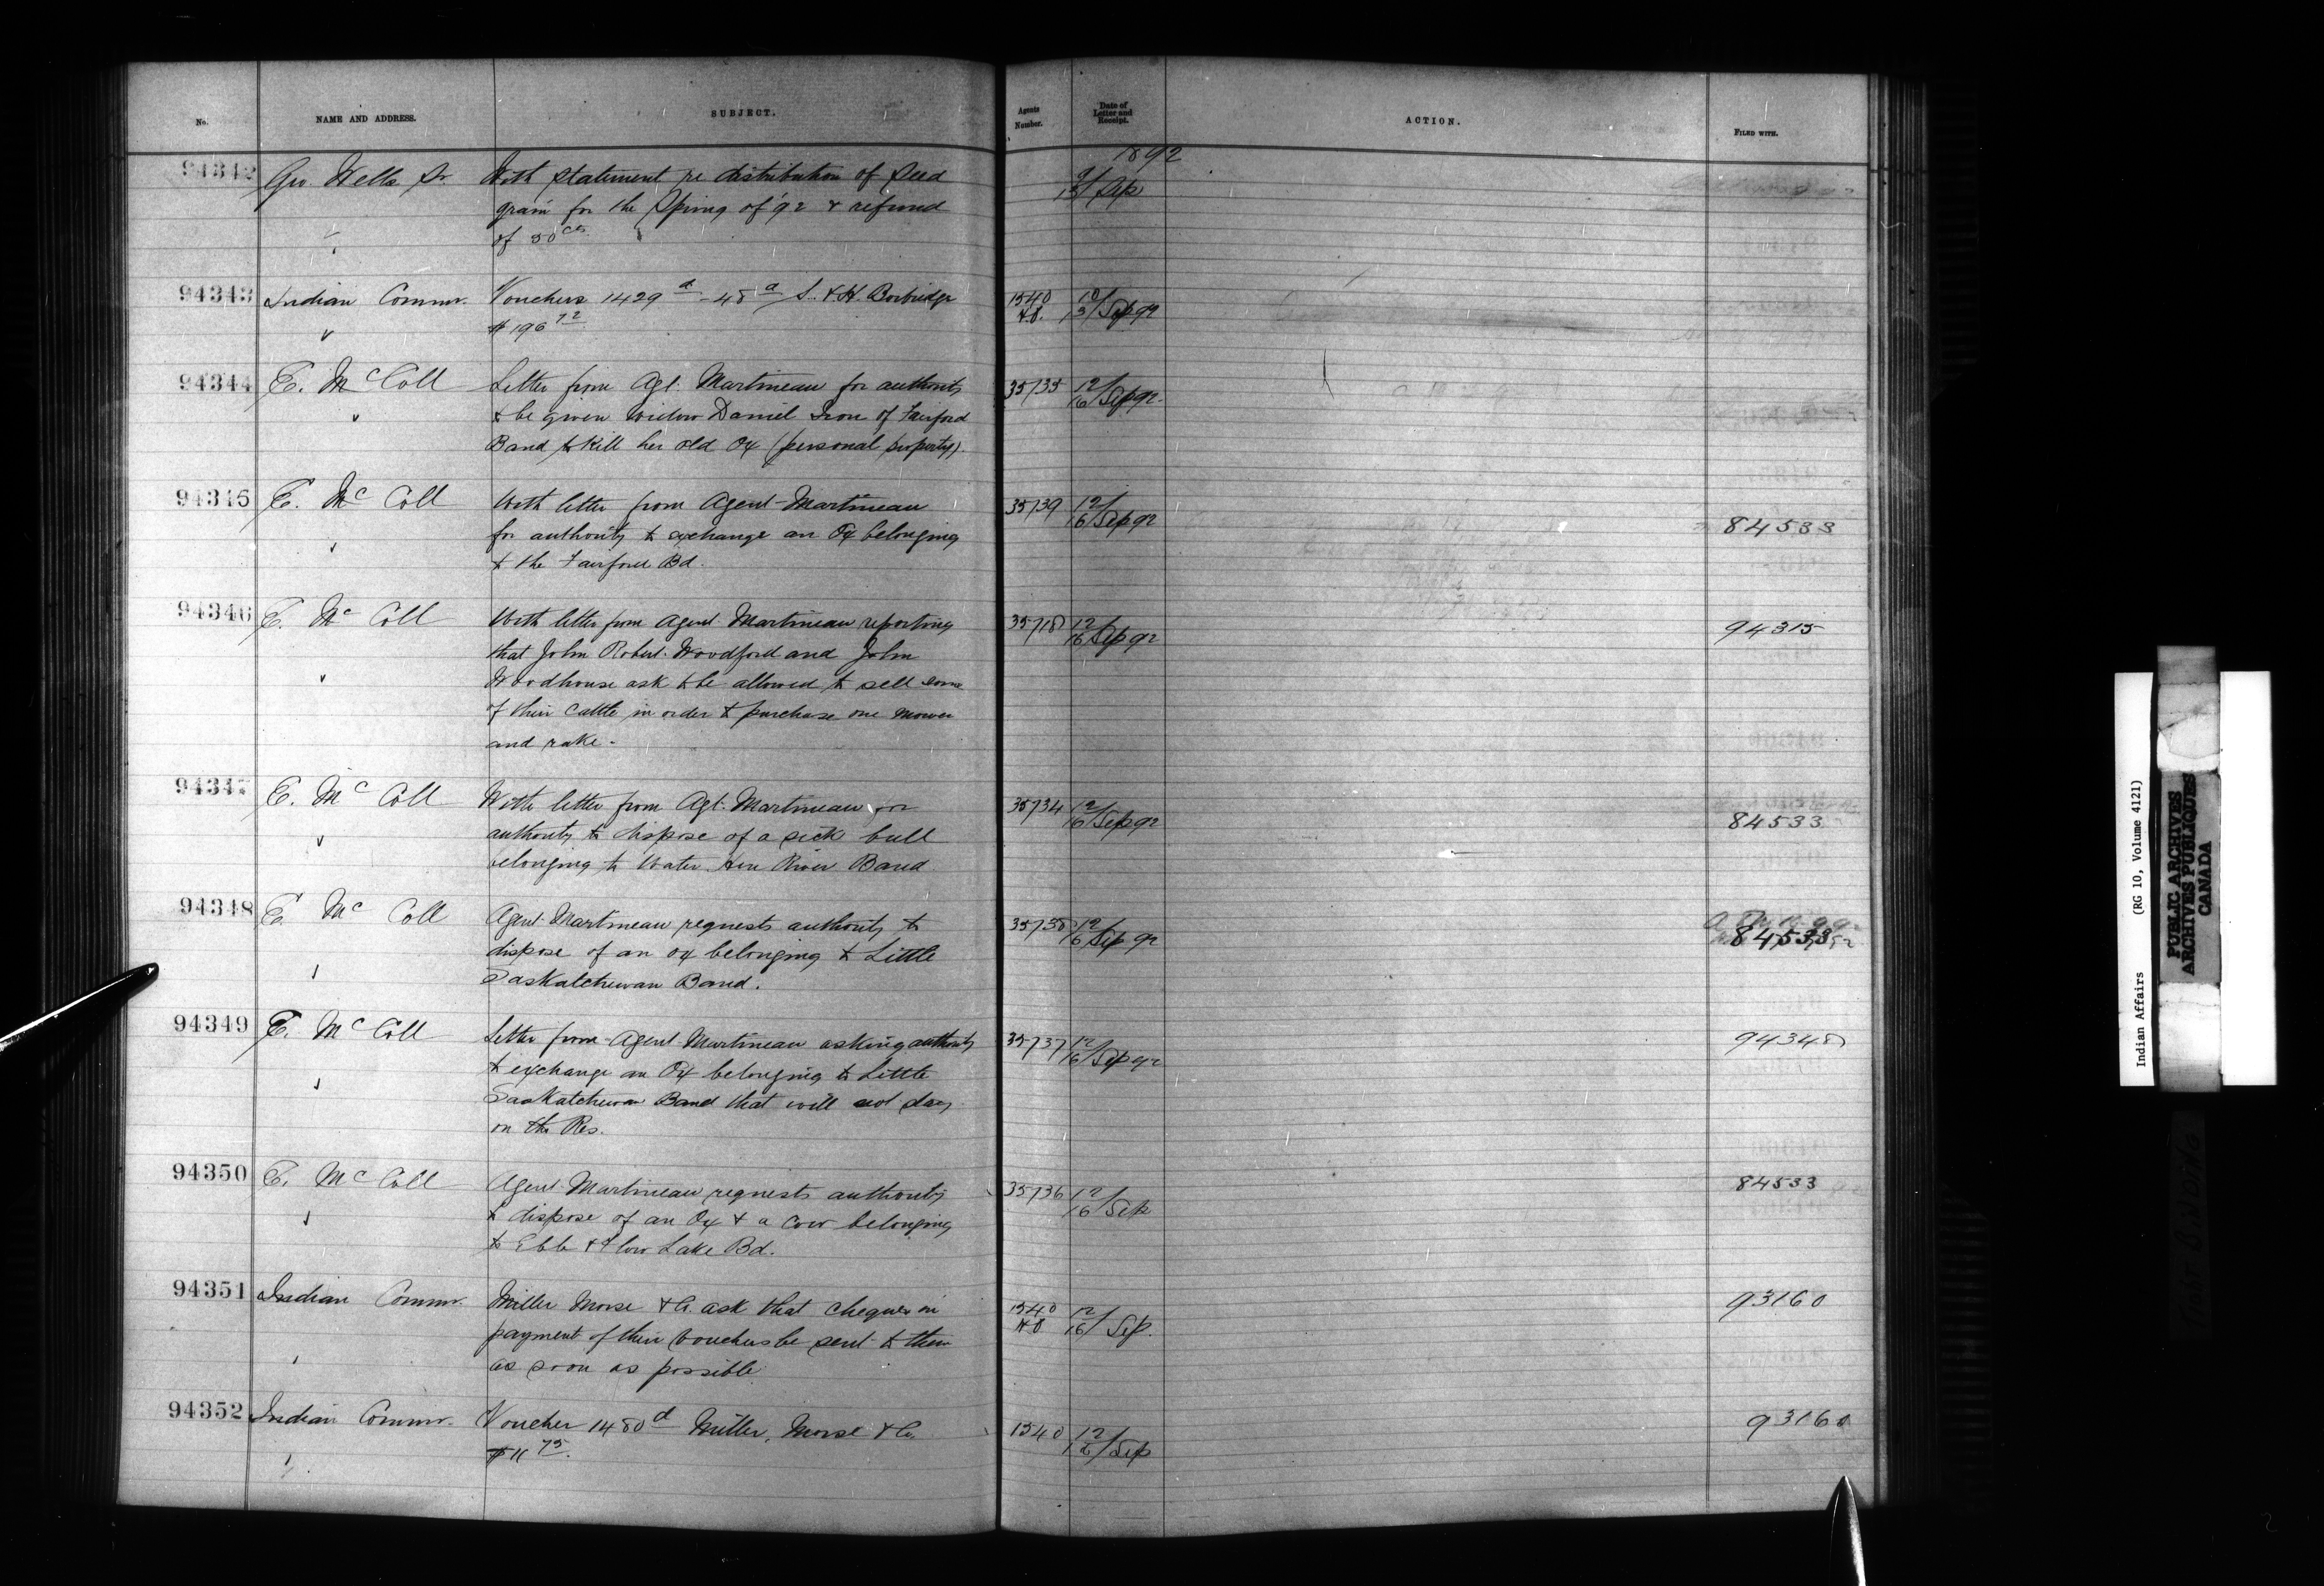 No. NAME AND ADDRESS. SUBJECT. Agents Number. Date of Letter and Receipt. ACTION. FILED WITH.
1892
94342 Geo. Wells Sr. With statement re distribution of Seed 9/13 Sep
grain for the Spring of '92 & refund
of 50 cts.
94343 Indian Commr. Vouchers 1429 a - 48 a S. & H. Borbridge 1540 10/13 Sep 92
$196 72
94344 E. McColl Letter from Agt. Martineau for authority 35/35 12/16 Sep 92
to be given widow Daniel Iron of Fairford
Band to kill her old Ox (personal property).
94345 E. McColl With letter from Agent Martineau 35/39 12/16 Sep 92
for authority to exchange an Ox belonging 84533
to the Fairford Bd.
94346 E. McColl With letter from Agent Martineau reporting 35/18 12/16 Sep 92 94315
that John Robert Woodford and John
Woodhouse ask to be allowed to sell some
of their cattle in order to purchase one mower
and rake.
94347 E. McColl With letter from Agt. Martineau for 35/34 12/16 Sep 92
authority to dispose of a sick bull 84533
belonging to Water Hen River Band
94348 E. McColl Agent Martineau requests authority to 35/38 12/16 Sep 92
dispose of an ox belonging to Little 84533
Saskatchewan Band.
94349 E. McColl Letter from Agent Martineau asking authority 35/37 12/16 Sep 92 94348
to exchange an Ox belonging to Little
Saskatchewan Band that will not stay
on the Res.
94350 E. McColl Agent Martineau requests authority 35/36 12/16 Sep 84533
to dispose of an Ox & a Cow belonging
to Ebb & Flow Lake Bd.
94351 Indian Commr. Miller Morse & Co. ask that cheques in 1540 12/16 Sep. 93160
payment of their vouchers be sent to them
as soon as possible
94352 Indian Commr. Voucher 1480 d Miller, Morse & Co. 1540 12/16 Sep 93160
$11 75.
Indian Affairs (RG 10, Volume 4121)
PUBLIC ARCHIVES
ARCHIVES PUBLIQUES
CANADA